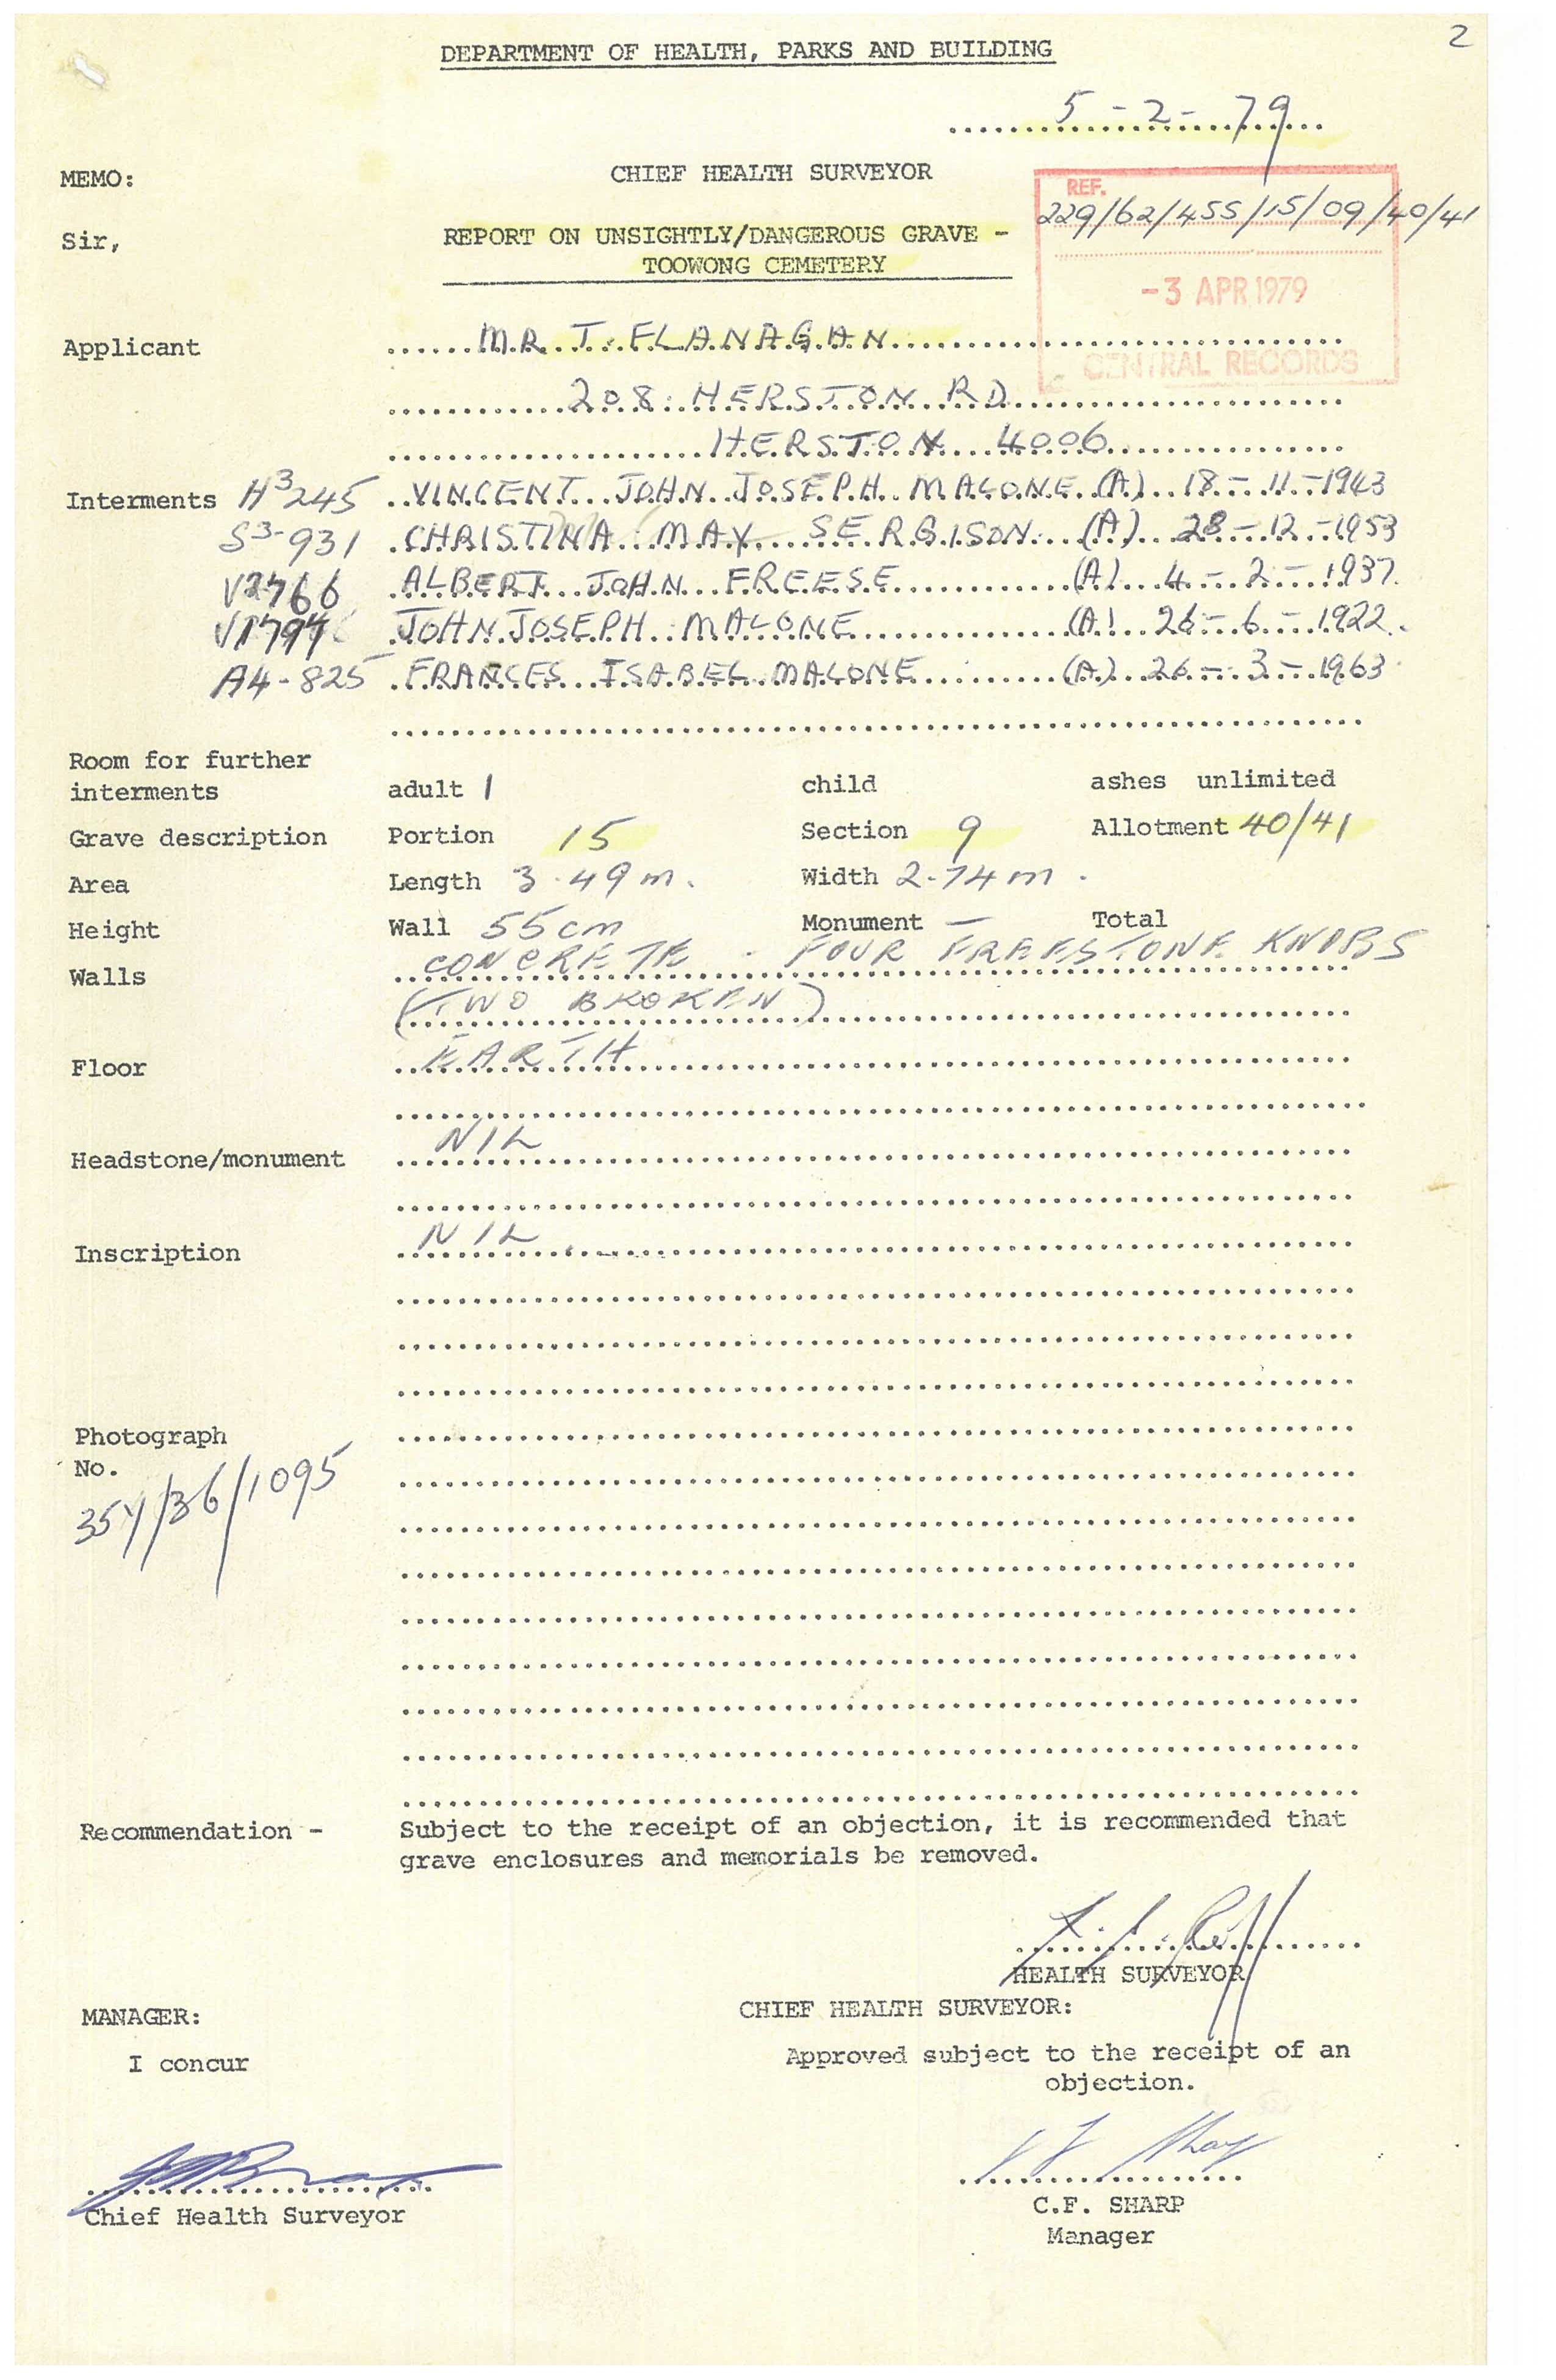 2
DEPARTMENT OF HEALTH, PARKS AND BUILDING
5-2-79
MEMO:
CHIEF HEALTH SURVEYOR
REF.
229/62/455/15/09/40/41
Sir,
REPORT ON UNSIGHTLY/DANGEROUS GRAVE -
TOOWONG CEMETERY
-3 APR 1979
CENTRAL RECORDS
Applicant MR. T. FLANAGAN
208 HERSTON RD
HERSTON 4006
Interments H3 245 VINCENT JOHN JOSEPH MALONE (A) 18-11-1943
S3-931 CHRISTINA MAY SERGISON (A) 28-12-1953
V2766 ALBERT JOHN FREESE (A) 4-2-1937
V1794 JOHN JOSEPH MALONE (A) 26-6-1922
A4-825 FRANCES ISABEL MALONE (A) 26-3-1963
Room for further
interments adult 1 child ashes unlimited
Grave description Portion 15 Section 9 Allotment 40/41
Area Length 3.49m. Width 2.74m.
Height Wall 55cm Monument — Total
Walls CONCRETE - FOUR FREESTONE KNOBS
(TWO BROKEN)
Floor EARTH
Headstone/monument NIL
Inscription NIL
Photograph
No.
354/36/1095
Recommendation - Subject to the receipt of an objection, it is recommended that
grave enclosures and memorials be removed.
HEALTH SURVEYOR
MANAGER: CHIEF HEALTH SURVEYOR:
I concur Approved subject to the receipt of an
objection.
Chief Health Surveyor C.F. SHARP
Manager